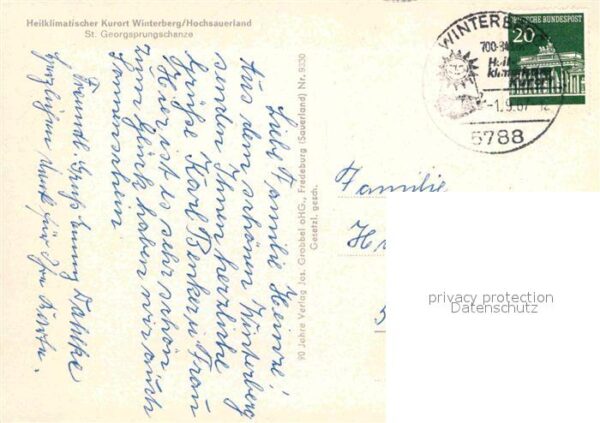 Heilklimatischer Kurort Winterberg/Hochsauerland
St. Georgsprungschanze
Liebe Familie Heinze!
Aus dem schönen Winterberg
senden Ihnen herzliche
Grüße Karl Benker u. Frau
Hier ist es sehr schön
zum Glück haben wir auch
Sonnenschein
Freundl. Gruß
herzlichen Dank für Ihre Karte.
90 Jahre Verlag Jos. Grobbel oHG., Fredeburg (Sauerland) Nr. 9330
Gesetzl. gesch.
Familie
WINTERBERG
700-84
Heil
klimatischer
-1.9.67-12
5788
DEUTSCHE BUNDESPOST
20
privacy protection
Datenschutz